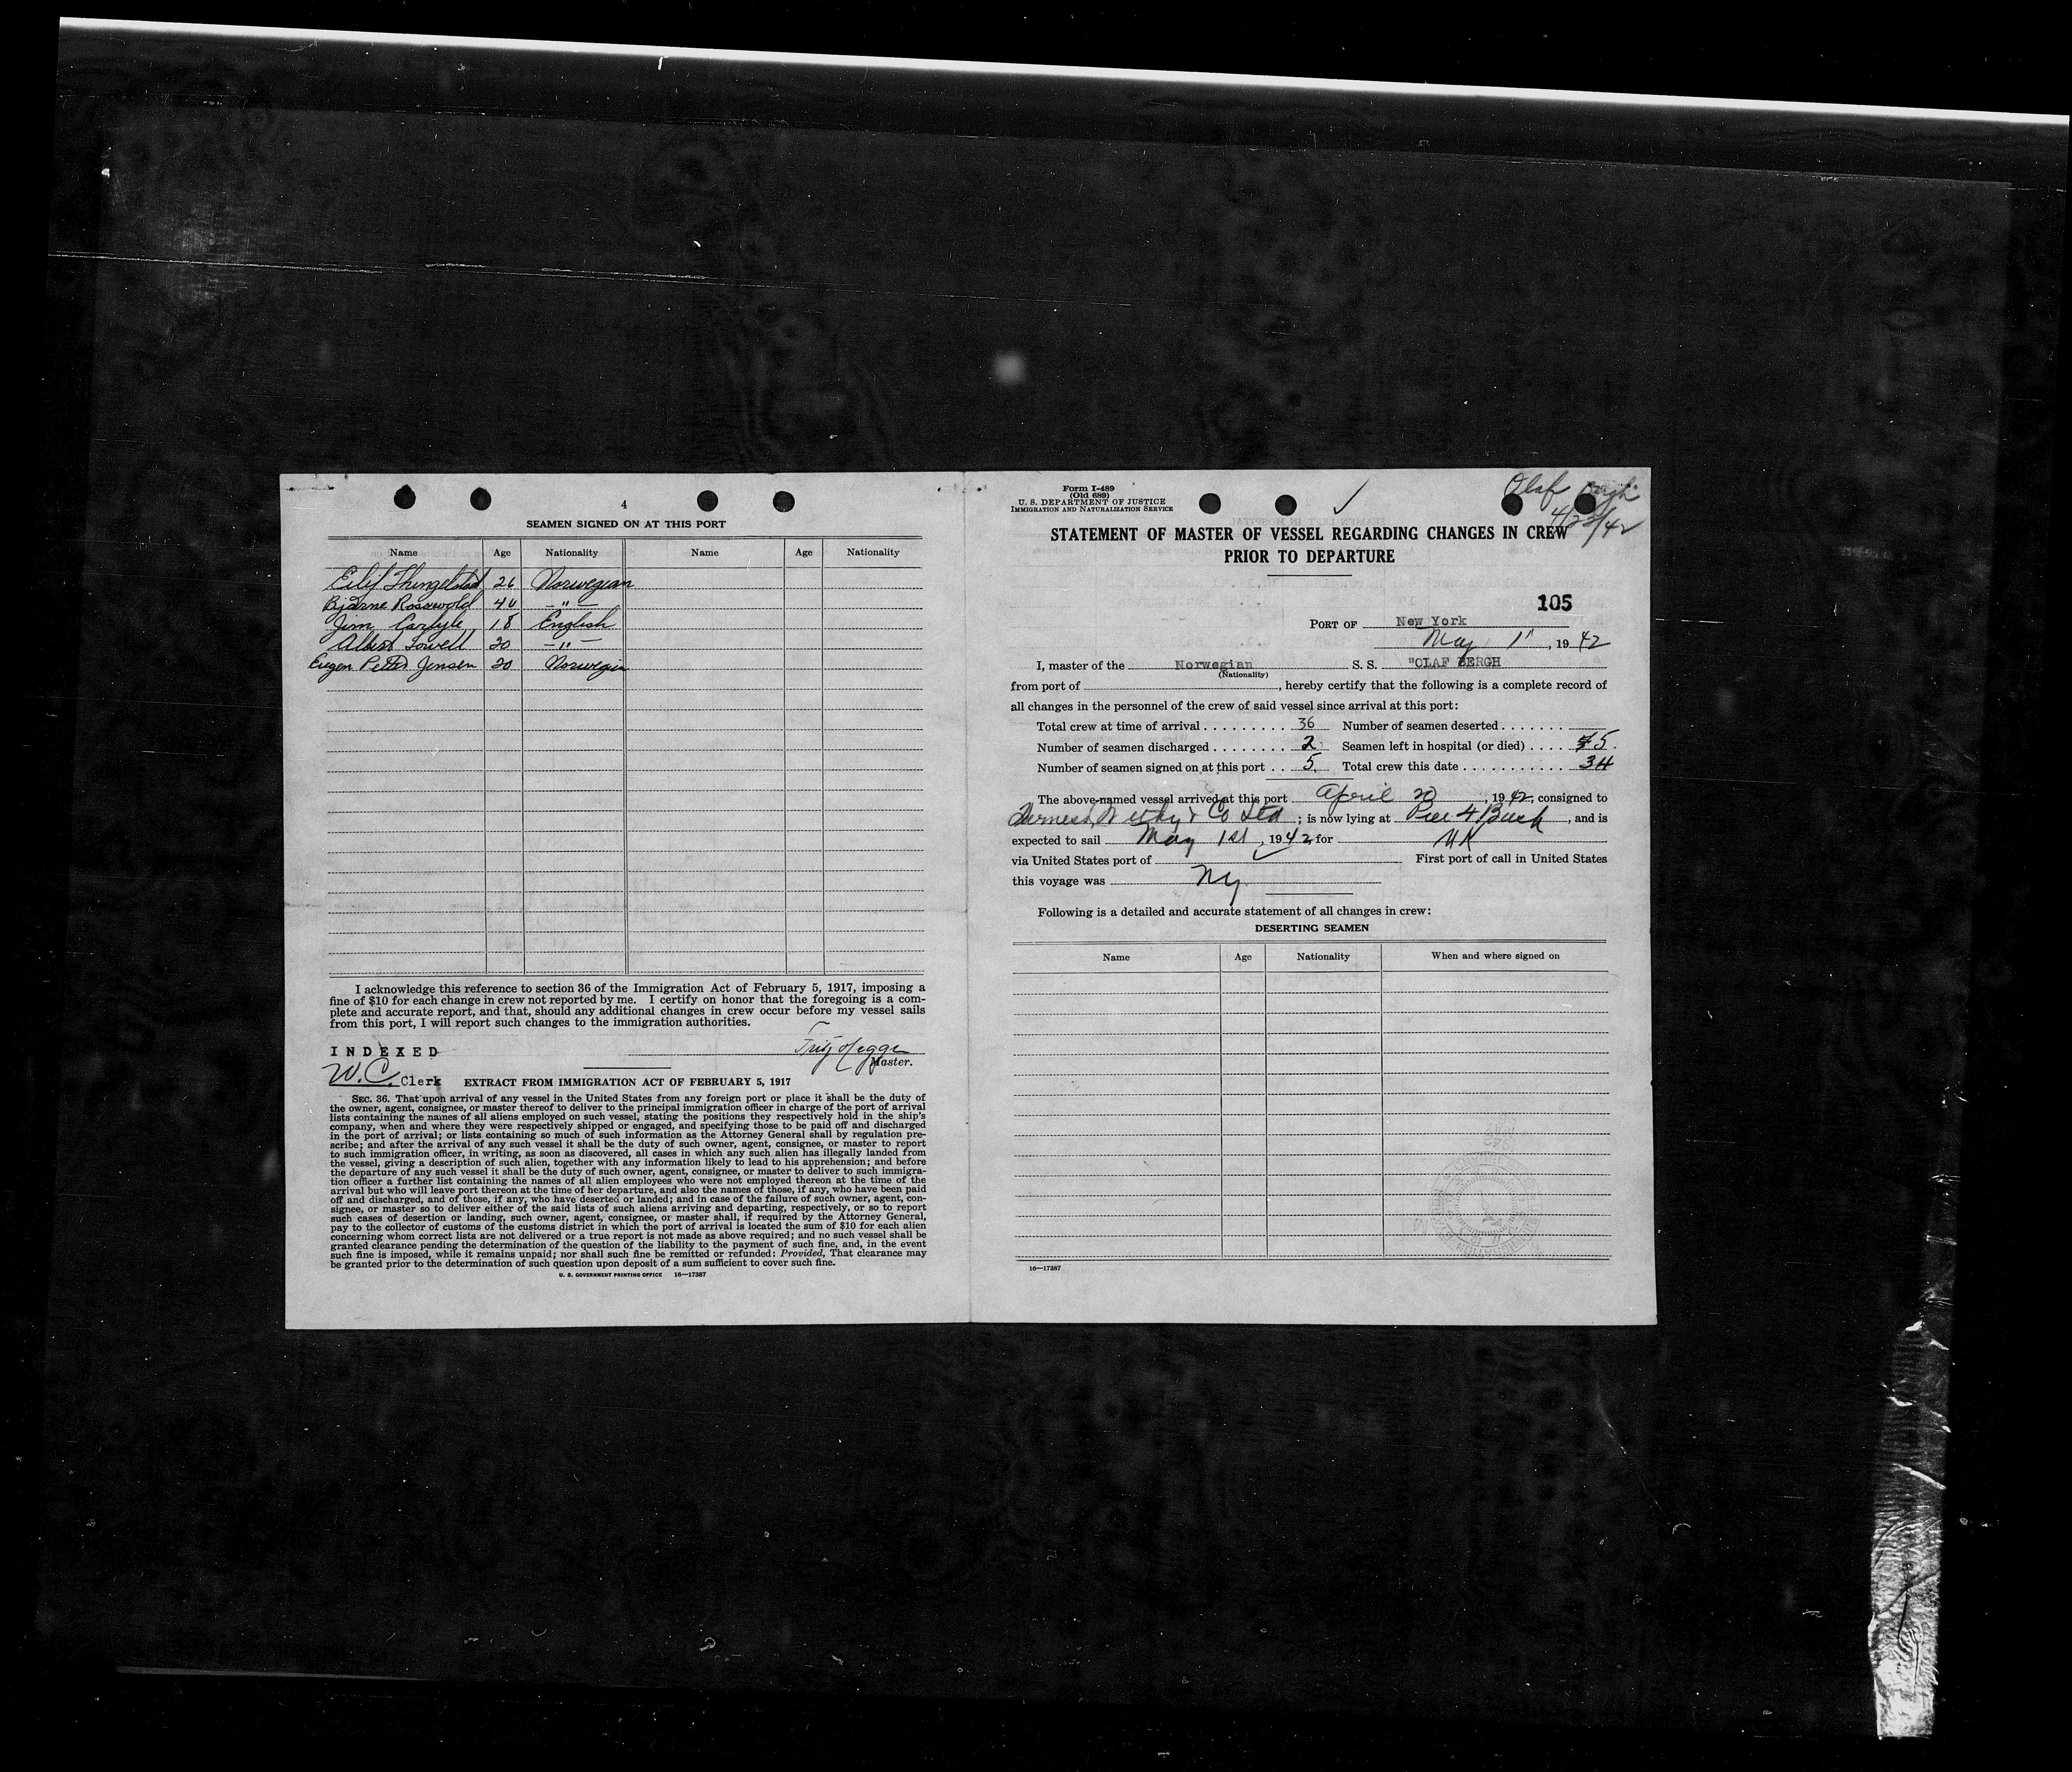 4
SEAMEN SIGNED ON AT THIS PORT
Name Age Nationality Name Age Nationality
Eilif Thingelstad 26 Norwegian
Bjarne Rosswold 40 -"-
Jim Carlyle 18 English
Albert Towell 20 -"-
Eugen Petter Jensen 20 Norwegin
I acknowledge this reference to section 36 of the Immigration Act of February 5, 1917, imposing a
fine of $10 for each change in crew not reported by me. I certify on honor that the foregoing is a com-
plete and accurate report, and that, should any additional changes in crew occur before my vessel sails
from this port, I will report such changes to the immigration authorities.
INDEXED
Master.
W.C. Clerk
EXTRACT FROM IMMIGRATION ACT OF FEBRUARY 5, 1917
SEC. 36. That upon arrival of any vessel in the United States from any foreign port or place it shall be the duty of
the owner, agent, consignee, or master thereof to deliver to the principal immigration officer in charge of the port of arrival
lists containing the names of all aliens employed on such vessel, stating the positions they respectively hold in the ship's
company, when and where they were respectively shipped or engaged, and specifying those to be paid off and discharged
in the port of arrival; or lists containing so much of such information as the Attorney General shall by regulation pre-
scribe; and after the arrival of any such vessel it shall be the duty of such owner, agent, consignee, or master to report
to such immigration officer, in writing, as soon as discovered, all cases in which any such alien has illegally landed from
the vessel, giving a description of such alien, together with any information likely to lead to his apprehension; and before
the departure of any such vessel it shall be the duty of such owner, agent, consignee, or master to deliver to such immigra-
tion officer a further list containing the names of all alien employees who were not employed thereon at the time of the
arrival but who will leave port thereon at the time of her departure, and also the names of those, if any, who have been paid
off and discharged, and of those, if any, who have deserted or landed; and in case of the failure of such owner, agent, con-
signee, or master so to deliver either of the said lists of such aliens arriving and departing, respectively, or so to report
such cases of desertion or landing, such owner, agent, consignee, or master shall, if required by the Attorney General,
pay to the collector of customs of the customs district in which the port of arrival is located the sum of $10 for each alien
concerning whom correct lists are not delivered or a true report is not made as above required; and no such vessel shall be
granted clearance pending the determination of the question of the liability to the payment of such fine, and, in the event
such fine is imposed, while it remains unpaid; nor shall such fine be remitted or refunded: Provided, That clearance may
be granted prior to the determination of such question upon deposit of a sum sufficient to cover such fine.
U. S. GOVERNMENT PRINTING OFFICE 16—17387
Form I-489
(Old 689)
U. S. DEPARTMENT OF JUSTICE
IMMIGRATION AND NATURALIZATION SERVICE
Olaf Bergh
4/23/42
STATEMENT OF MASTER OF VESSEL REGARDING CHANGES IN CREW
PRIOR TO DEPARTURE
105
PORT OF New York
May 1", 1942
I, master of the Norwegian S. S. "OLAF BERGH
(Nationality)
from port of , hereby certify that the following is a complete record of
all changes in the personnel of the crew of said vessel since arrival at this port:
Total crew at time of arrival 36 Number of seamen deserted
Number of seamen discharged 2 Seamen left in hospital (or died) 5.
Number of seamen signed on at this port 5. Total crew this date 34
The above-named vessel arrived at this port April 20, 1942, consigned to
Furness, Withy & Co Ltd; is now lying at Pier 4 Bush, and is
expected to sail May 1st, 1942 for UK
via United States port of First port of call in United States
this voyage was Ny
Following is a detailed and accurate statement of all changes in crew:
DESERTING SEAMEN
Name Age Nationality When and where signed on
16—17387